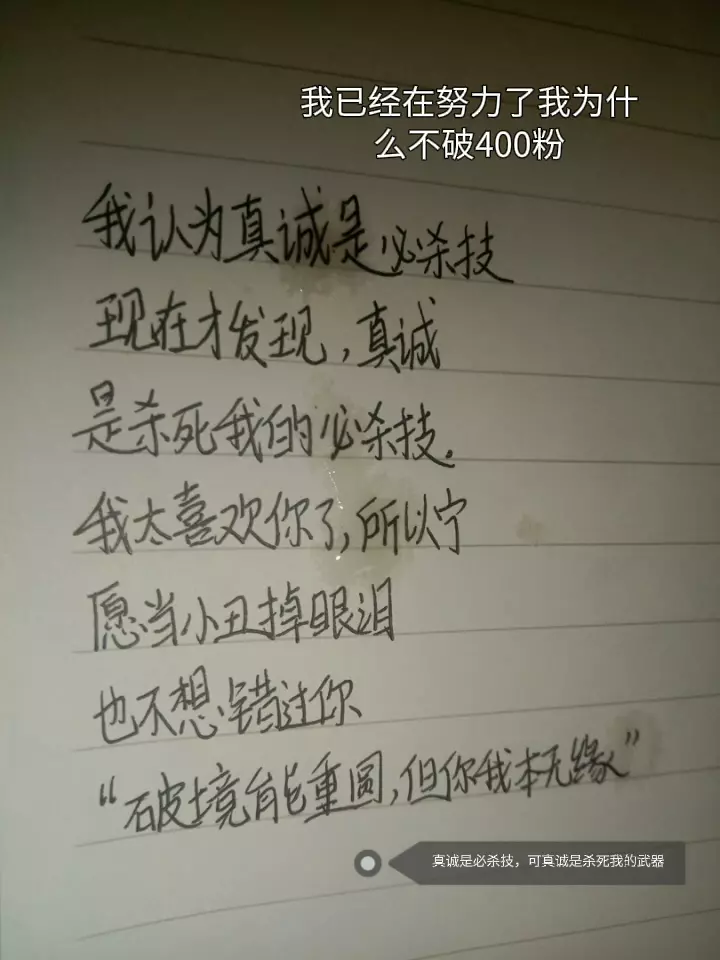 我已经在努力了我为什
么不破400粉
我认为真诚是必杀技
现在才发现，真诚
是杀死我的必杀技.
我太喜欢你了,所以宁
愿当小丑掉眼泪
也不想错过你
“破境能重圆,但你我本无缘”
真诚是必杀技，可真诚是杀死我的武器